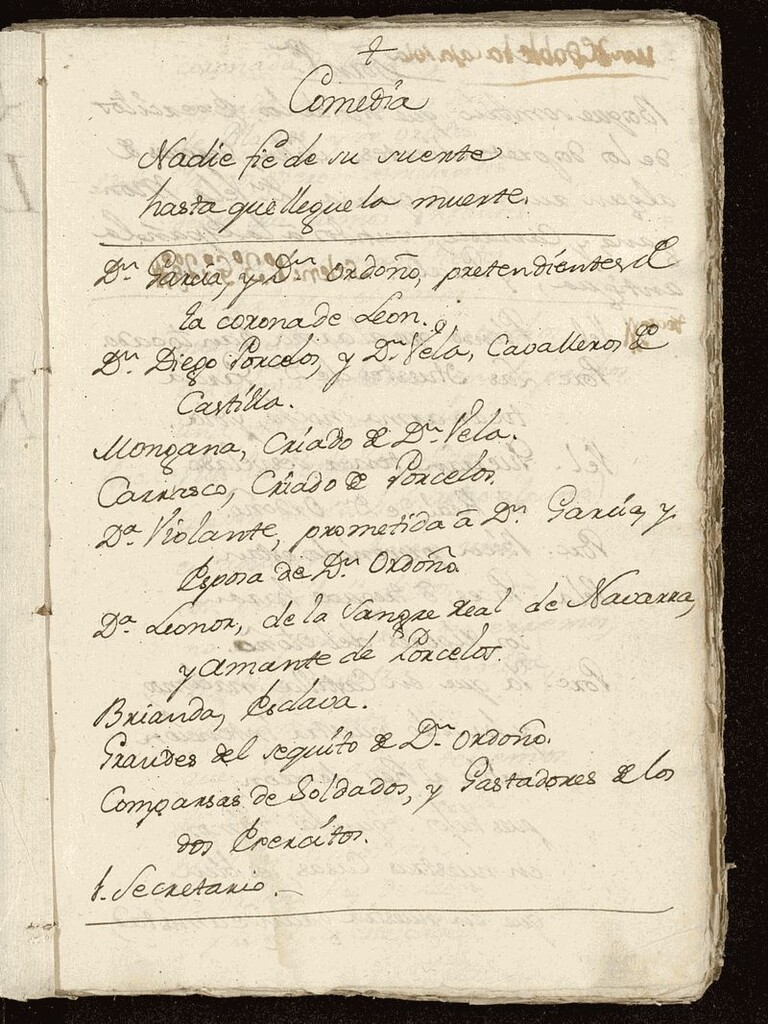 Comedia
Nadie fie de su suerte
hasta que llegue la muerte.
Dn. Garcia, y Dn. Ordoño, pretendientes de
la corona de Leon.
Dn. Diego Porcelos, y Dn. Vela, Cavalleros de
Castilla.
Mongana, Criado de Dn. Vela.
Carrasco, Criado de Porcelos.
Da. Violante, prometida à Dn. Garcia, y
Esposa de Dn. Ordoño
Da. Leonor, de la Sangre Real de Navarra,
y Amante de Porcelos.
Brianda, Esclava.
Grandes del sequito de Dn. Ordoño.
Comparsas de Soldados, y Gastadores de los
dos Exercitos.
1. Secretario.